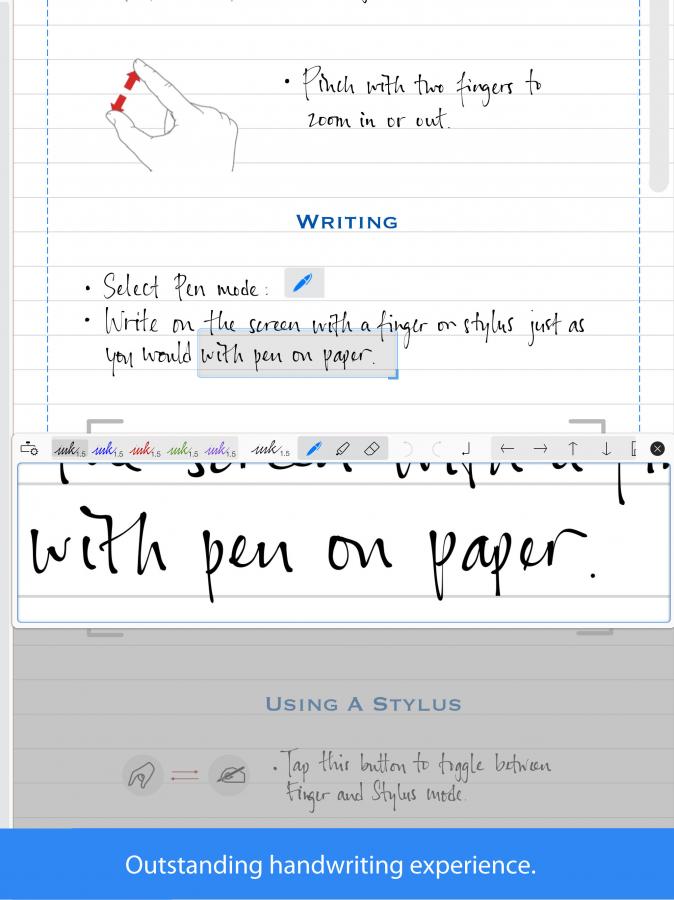 • Pinch with two fingers to
zoom in or out.
WRITING
• Select Pen mode:
• Write on the screen with a finger or stylus just as
you would with pen on paper.
ink1.5 ink1.5 ink1.5 ink1.5 ink1.5 ink1.5
the screen with a fin
with pen on paper.
USING A STYLUS
• Tap this button to toggle between
Finger and Stylus mode.
Outstanding handwriting experience.